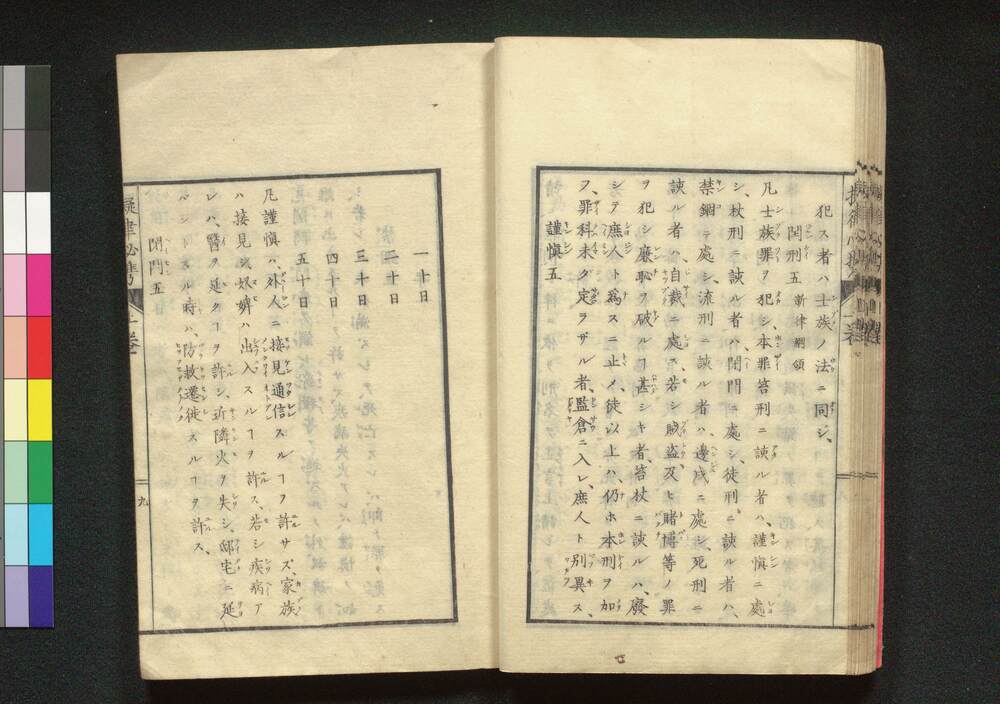 犯ス者ハ士族ノ法ニ同ジ、
閏刑五 新律綱領
凡士族罪ヲ犯シ本罪笞刑ニ該ル者ハ、謹慎ニ處
シ、杖刑ニ該ル者ハ閉門ニ處シ、徒刑ニ該ル者ハ、
禁錮ニ處シ、流刑ニ該ル者ハ邊戍ニ處シ、死刑ニ
該ル者ハ、自裁ニ處ス、若シ賊盗及ヒ賭博等ノ罪
ヲ犯シ廉恥ヲ破ルコ甚シキ者、笞杖ニ該ルハ、廢
シテ庶人ト爲スニ止メ、徒以上ハ、仍ホ本刑ヲ加
フ、罪科未ダ定ラザル者監倉ニ入レ、庶人ト別異ス、
謹慎五
一十日
二十日
三十日
四十日
五十日
凡謹慎ハ、外人ニ接見通信スルコヲ許サズ、家族
ハ接見シ奴婢ハ出入スルコヲ許ス、若シ疾病ア
レハ、醫ヲ延クコヲ許シ、近隣火ヲ失シ、邸宅ニ延
ントスル時ハ、防救遷徙スルコヲ許ス、
閉門五
擬律必携
一巻
九